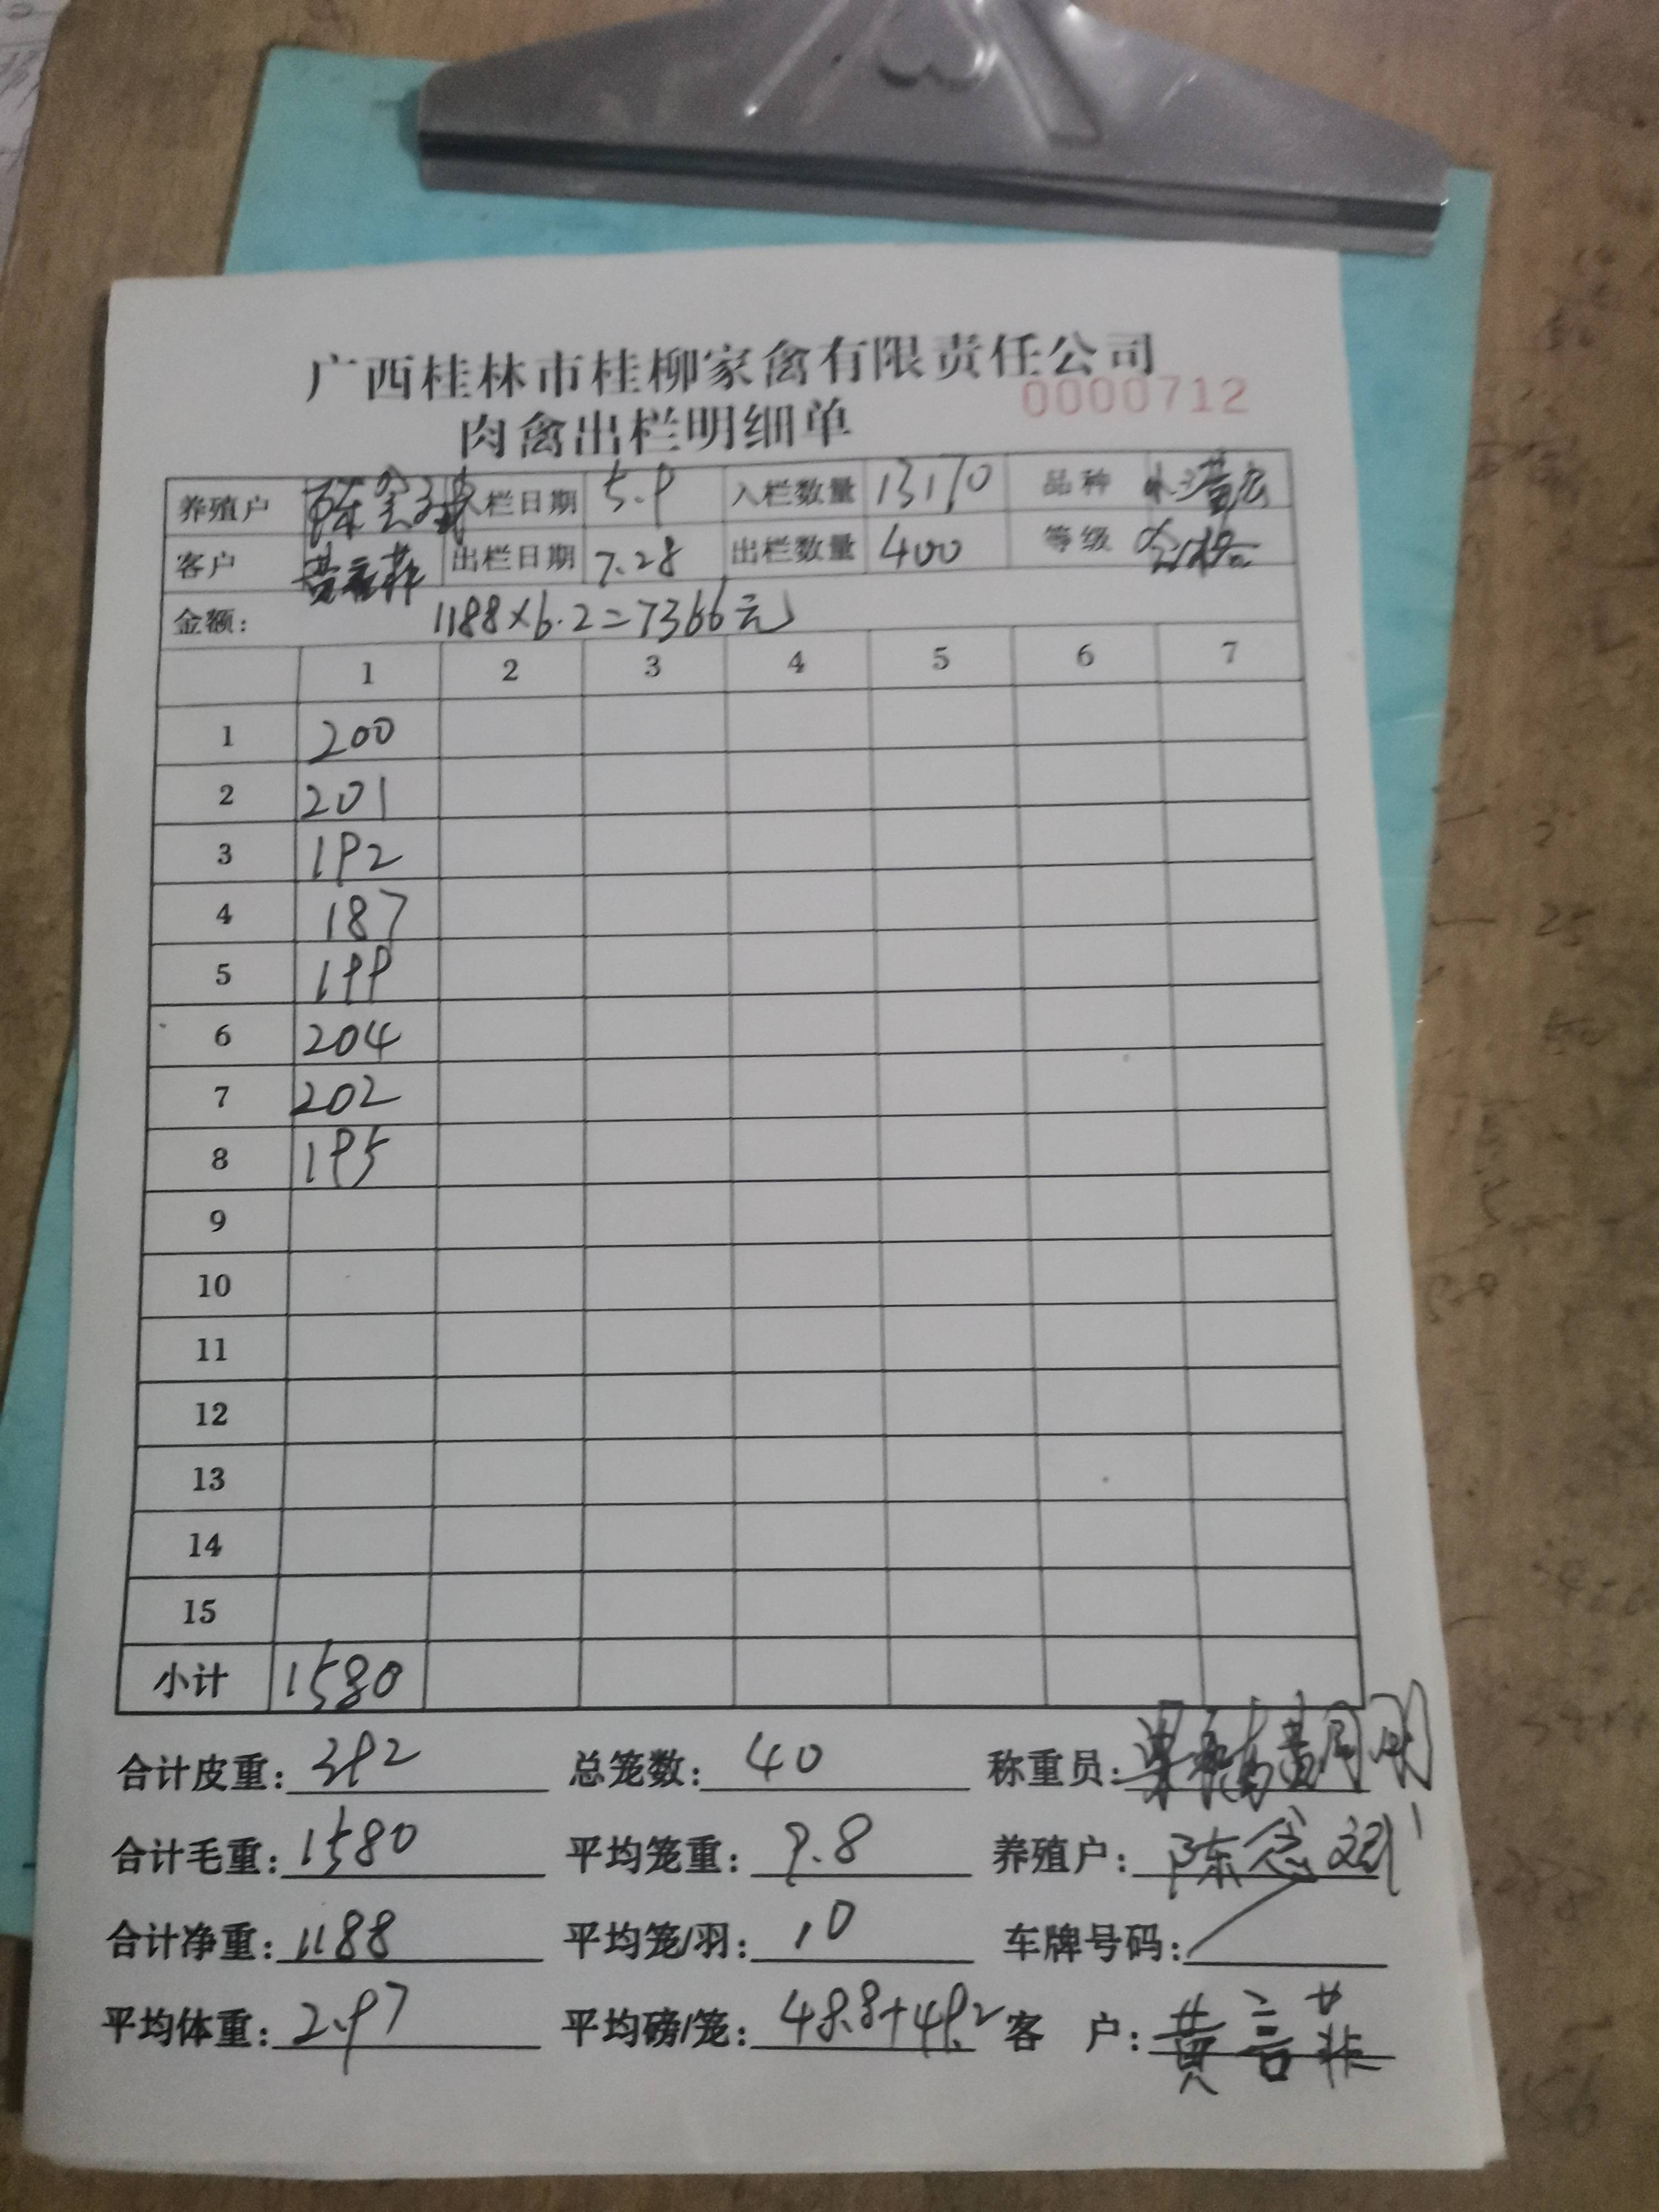 广西桂林市桂柳家禽有限责任公司
0000712
肉禽出栏明细单
养殖户 陈 栏日期 5.9 入栏数量 13170 品种
客户 黄言菲 出栏日期 7.28 出栏数量 400 等级 合格
金额: 1188×6.2=7366元
1 2 3 4 5 6 7
1 200
2 201
3 192
4 187
5 199
6 204
7 202
8 195
9
10
11
12
13
14
15
小计 1580
合计皮重: 392 总笼数: 40 称重员:
合计毛重: 1580 平均笼重: 9.8 养殖户: 陈念斌
合计净重: 1188 平均笼/羽: 10 车牌号码:
平均体重: 2.97 平均磅/笼: 48.8+49.2 客 户: 黄言菲